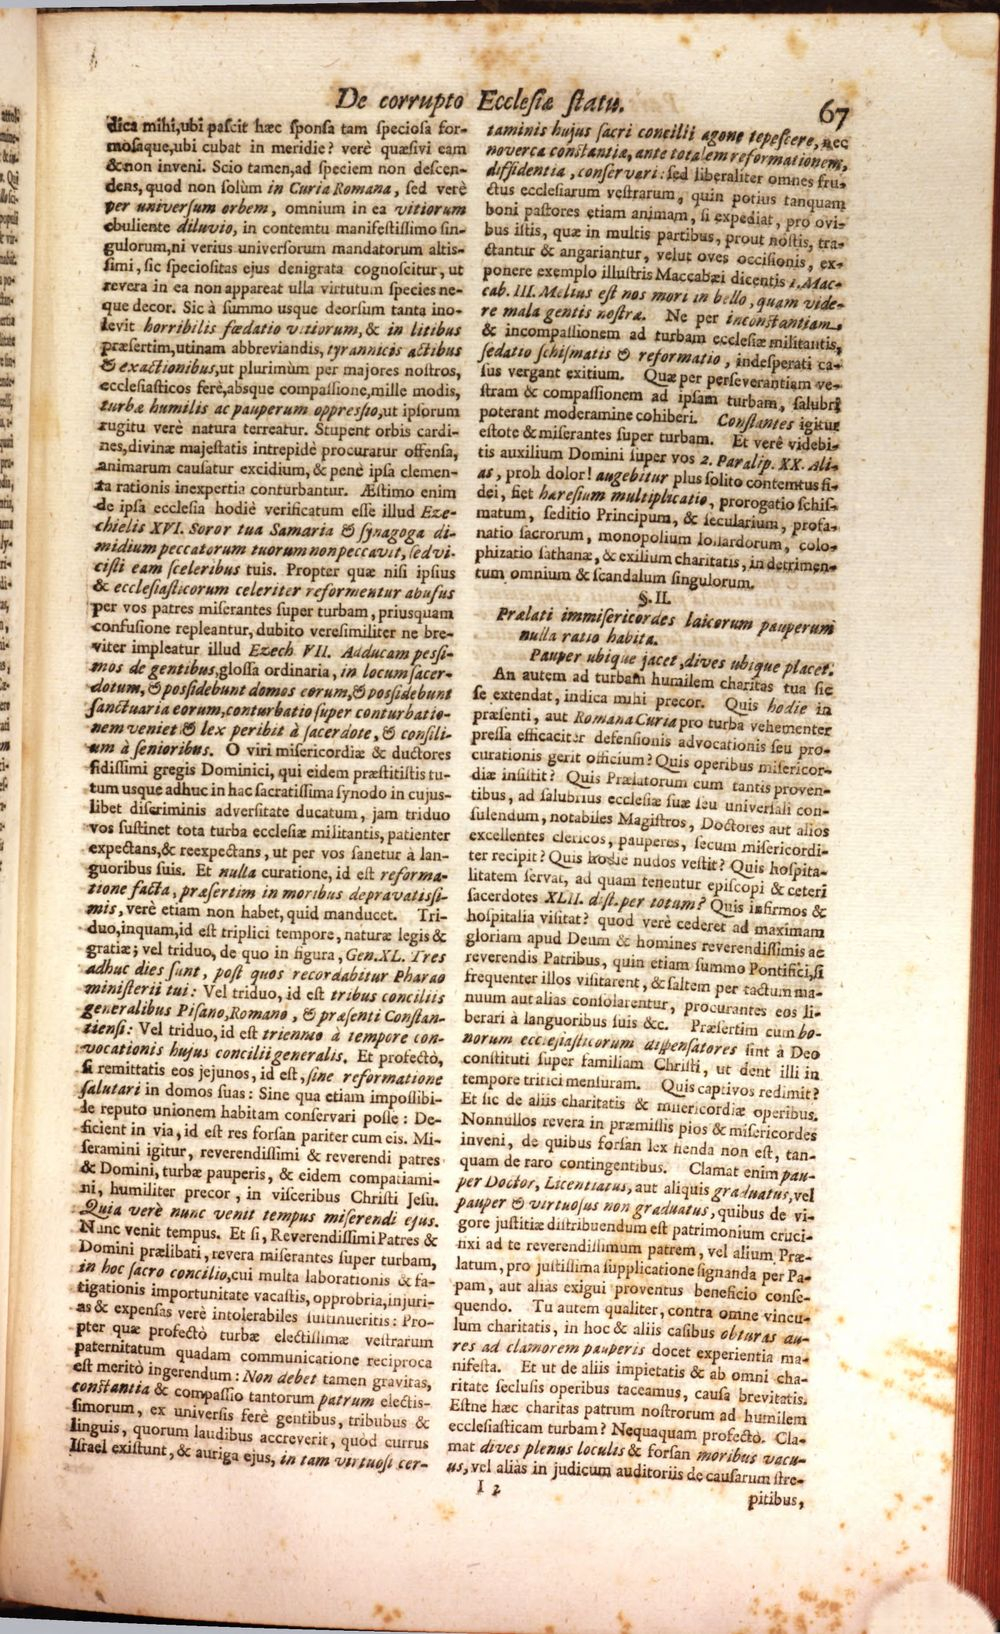 De corrupto Ecclesiæ statu.
67
dica mihi, ubi pascit hæc sponsa tam speciosa for-
mosaque, ubi cubat in meridie? verè quæsivi eam
& non inveni. Scio tamen, ad speciem non descen-
dens, quod non solùm in Curia Romana, sed verè
per universum orbem, omnium in ea vitiorum
ebuliente diluvio, in contemtu manifestissimo sin-
gulorum, ni verius universorum mandatorum altis-
simi, sic speciositas ejus denigrata cognoscitur, ut
revera in ea non appareat ulla virtutum species ne-
que decor. Sic à summo usque deorsum tanta ino-
levit horribilis fœdatio vitiorum, & in litibus
præsertim, utinam abbreviandis, tyrannicis actibus
& exactionibus, ut plurimùm per majores nostros,
ecclesiasticos ferè, absque compassione, mille modis,
turbæ humilis ac pauperum oppressio, ut ipsorum
rugitu verè natura terreatur. Stupent orbis cardi-
nes, divinæ majestatis intrepidè procuratur offensa,
animarum causatur excidium, & penè ipsa clemen-
ta rationis inexpertia conturbantur. Æstimo enim
de ipsa ecclesia hodiè verificatum esse illud Eze-
chielis XVI. Soror tua Samaria & synagoga di-
midium peccatorum tuorum non peccavit, sed vi-
cisti eam sceleribus tuis. Propter quæ nisi ipsius
& ecclesiasticorum celeriter reformentur abusus
per vos patres miserantes super turbam, priusquam
confusione repleantur, dubito veresimiliter ne bre-
viter impleatur illud Ezech. VII. Adducam pessi-
mos de gentibus, glossa ordinaria, in locum sacer-
dotum, & possidebunt domos eorum, & possidebunt
sanctuaria eorum, conturbatio super conturbatio-
nem veniet & lex peribit à sacerdote, & consili-
um à senioribus. O viri misericordiæ & ductores
fidissimi gregis Dominici, qui eidem præstitistis tu-
tum usque adhuc in hac sacratissima synodo in cujus-
libet discriminis adversitate ducatum, jam triduo
vos sustinet tota turba ecclesiæ militantis, patienter
expectans, & reexpectans, ut per vos sanetur à lan-
guoribus suis. Et nulla curatione, id est reforma-
tione facta, præsertim in moribus depravatissi-
mis, verè etiam non habet, quid manducet. Tri-
duo, inquam, id est triplici tempore, naturæ legis &
gratiæ; vel triduo, de quo in figura, Gen. XL. Tres
adhuc dies sunt, post quos recordabitur Pharao
ministerii tui: Vel triduo, id est tribus conciliis
generalibus Pisano, Romano, & præsenti Constan-
tiensi: Vel triduo, id est triennio à tempore con-
vocationis hujus concilii generalis. Et profectò,
si remittatis eos jejunos, id est, sine reformatione
salutari in domos suas: Sine qua etiam impossibi-
le reputo unionem habitam conservari posse: De-
ficient in via, id est res forsan pariter cum eis. Mi-
seramini igitur, reverendissimi & reverendi patres
& Domini, turbæ pauperis, & eidem compatiami-
ni, humiliter precor, in visceribus Christi Jesu.
Quia verè nunc venit tempus miserendi ejus.
Nunc venit tempus. Et si, Reverendissimi Patres &
Domini prælibati, revera miserantes super turbam,
in hoc sacro concilio, cui multa laborationis & fa-
tigationis importunitate vacastis, opprobria, injuri-
as & expensas verè intolerabiles sustinueritis: Pro-
pter quæ profectò turbæ electissimæ vestrarum
paternitatum quadam communicatione reciproca
est meritò ingerendum: Non debet tamen gravitas,
constantia & compassio tantorum patrum electis-
simorum, ex universis ferè gentibus, tribubus &
linguis, quorum laudibus accreverit, quòd currus
Israel existunt, & auriga ejus, in tam virtuosi cer-
taminis hujus sacri concilii agone tepescere, nec
noverca constantia, ante totalem reformationem,
diffidentia, conservari: sed liberaliter omnes fru-
ctus ecclesiarum vestrarum, quin potius tanquam
boni pastores etiam animam, si expediat, pro ovi-
bus istis, quæ in multis partibus, prout nostis, tra-
ctantur & angariantur, velut oves occisionis, ex-
ponere exemplo illustris Maccabæi dicentis 1. Mac-
cab. III. Melius est nos mori in bello, quam vide-
re mala gentis nostræ. Ne per inconstantiam,
& incompassionem ad turbam ecclesiæ militantis,
sedatio schismatis & reformatio, indesperati ca-
sus vergant exitium. Quæ per perseverantiam ve-
stram & compassionem ad ipsam turbam, salubri
poterant moderamine cohiberi. Constantes igitur
estote & miserantes super turbam. Et verè videbi-
tis auxilium Domini super vos 2. Paralip. XX. Ali-
as, proh dolor! augebitur plus solito contemtus fi-
dei, fiet hæresium multiplicatio, prorogatio schis-
matum, seditio Principum, & secularium, profa-
natio sacrorum, monopolium lollardorum, colo-
phizatio sathanæ, & exilium charitatis, in detrimen-
tum omnium & scandalum singulorum.
§. II.
Prælati immisericordes laicorum pauperum
nulla ratio habita.
Pauper ubique jacet, dives ubique placet.
An autem ad turbam humilem charitas tua sic
se extendat, indica mihi precor. Quis hodie in
præsenti, aut Romana Curia pro turba vehementer
pressa efficaciter defensionis advocationis seu pro-
curationis gerit officium? Quis operibus misericor-
diæ insistit? Quis Prælatorum cum tantis proven-
tibus, ad salubrius ecclesiæ suæ seu universali con-
sulendum, notabiles Magistros, Doctores aut alios
excellentes clericos, pauperes, secum misericordi-
ter recipit? Quis hodie nudos vestit? Quis hospita-
litatem servat, ad quam tenentur episcopi & ceteri
sacerdotes XLII. dist. per totum? Quis infirmos &
hospitalia visitat? quod verè cederet ad maximam
gloriam apud Deum & homines reverendissimis ac
reverendis Patribus, quin etiam summo Pontifici, si
frequenter illos visitarent, & saltem per tactum ma-
nuum aut alias consolarentur, procurantes eos li-
berari à languoribus suis &c. Præsertim cum bo-
norum ecclesiasticorum dispensatores sint à Deo
constituti super familiam Christi, ut dent illi in
tempore tritici mensuram. Quis captivos redimit?
Et sic de aliis charitatis & misericordiæ operibus.
Nonnullos revera in præmissis pios & misericordes
inveni, de quibus forsan lex fienda non est, tan-
quam de raro contingentibus. Clamat enim pau-
per Doctor, Licentiatus, aut aliquis graduatus, vel
pauper & virtuosus non graduatus, quibus de vi-
gore justitiæ distribuendum est patrimonium cruci-
fixi ad te reverendissimum patrem, vel alium Præ-
latum, pro justissima supplicatione signanda per Pa-
pam, aut alias exigui proventus beneficio conse-
quendo. Tu autem qualiter, contra omne vincu-
lum charitatis, in hoc & aliis casibus obturas au-
res ad clamorem pauperis docet experientia ma-
nifesta. Et ut de aliis impietatis & ab omni cha-
ritate seclusis operibus taceamus, causa brevitatis.
Estne hæc charitas patrum nostrorum ad humilem
ecclesiasticam turbam? Nequaquam profectò. Cla-
mat dives plenus loculis & forsan moribus vacu-
us, vel alias in judicum auditoriis de causarum stre-
I 2
pitibus,